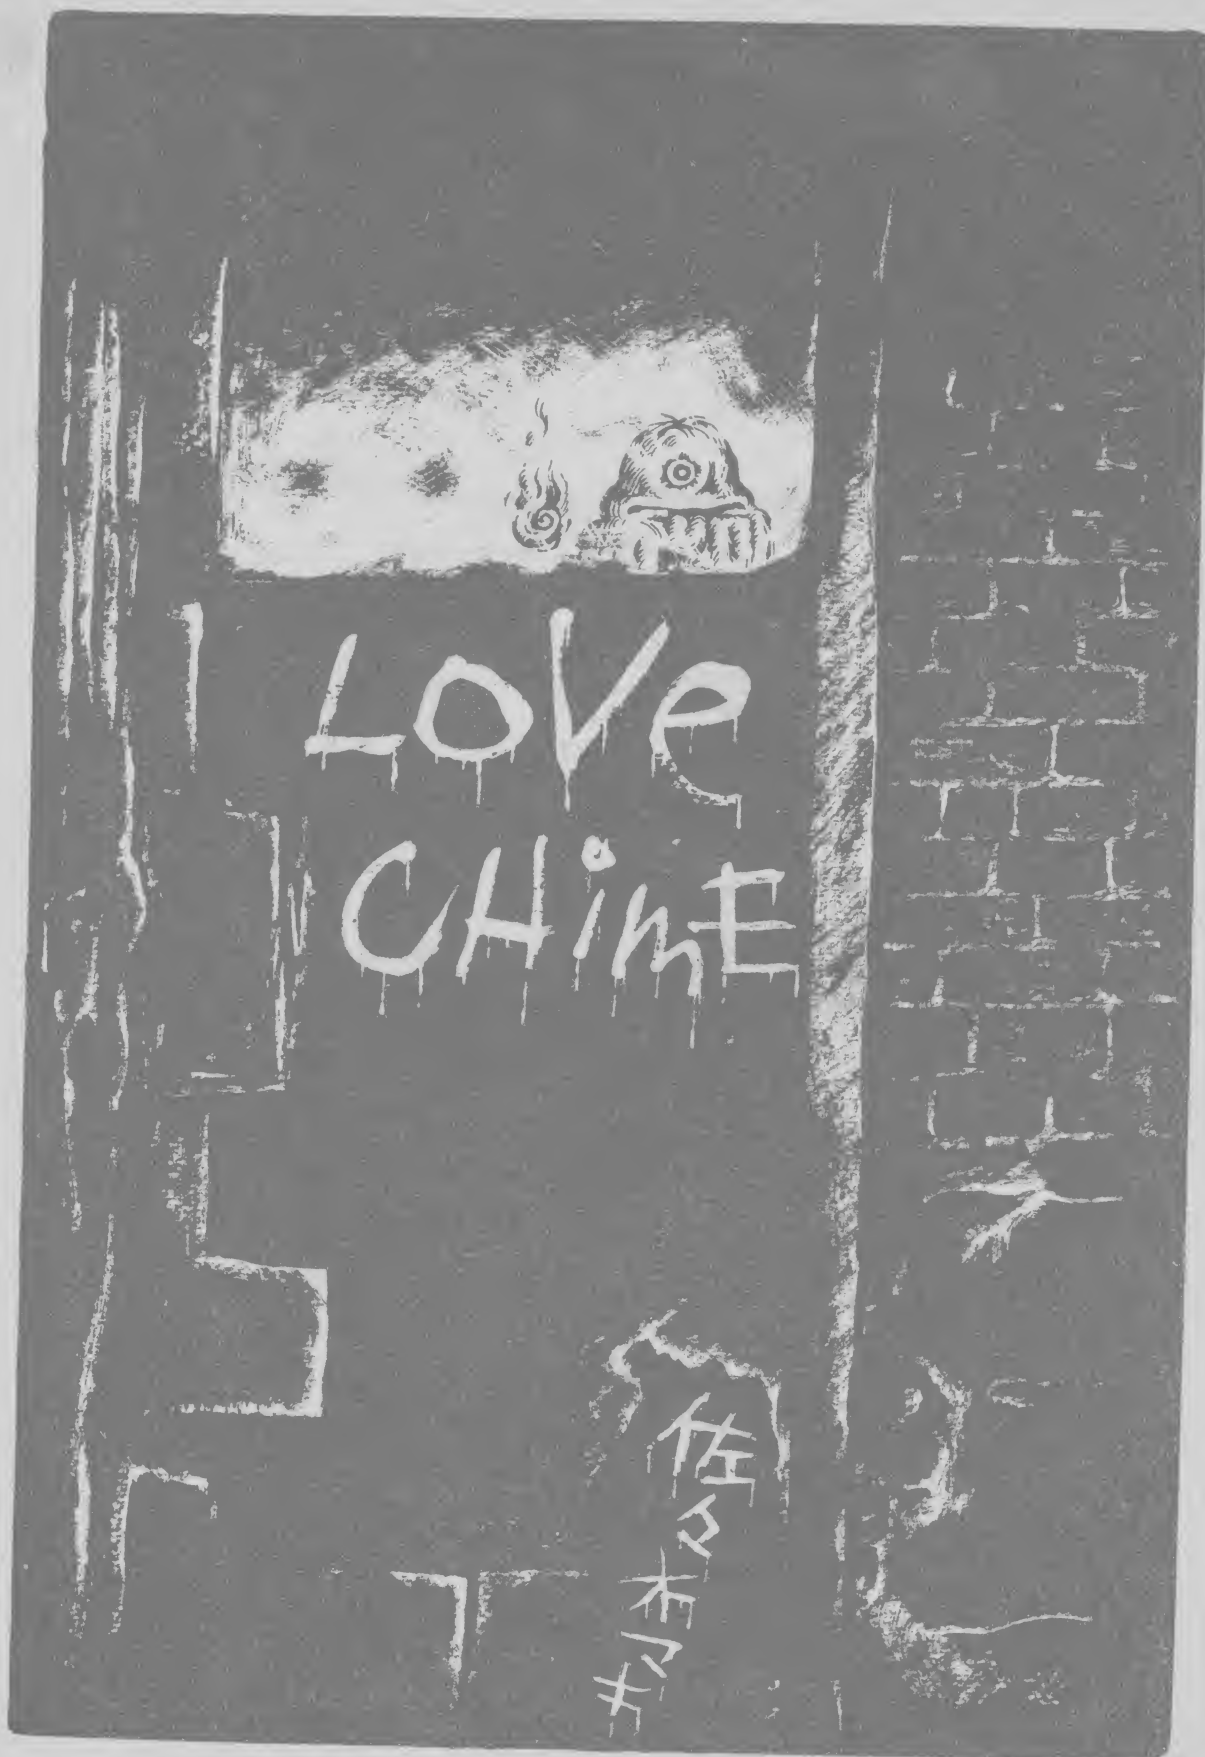 LOVe
CHimE
佐々木マキ